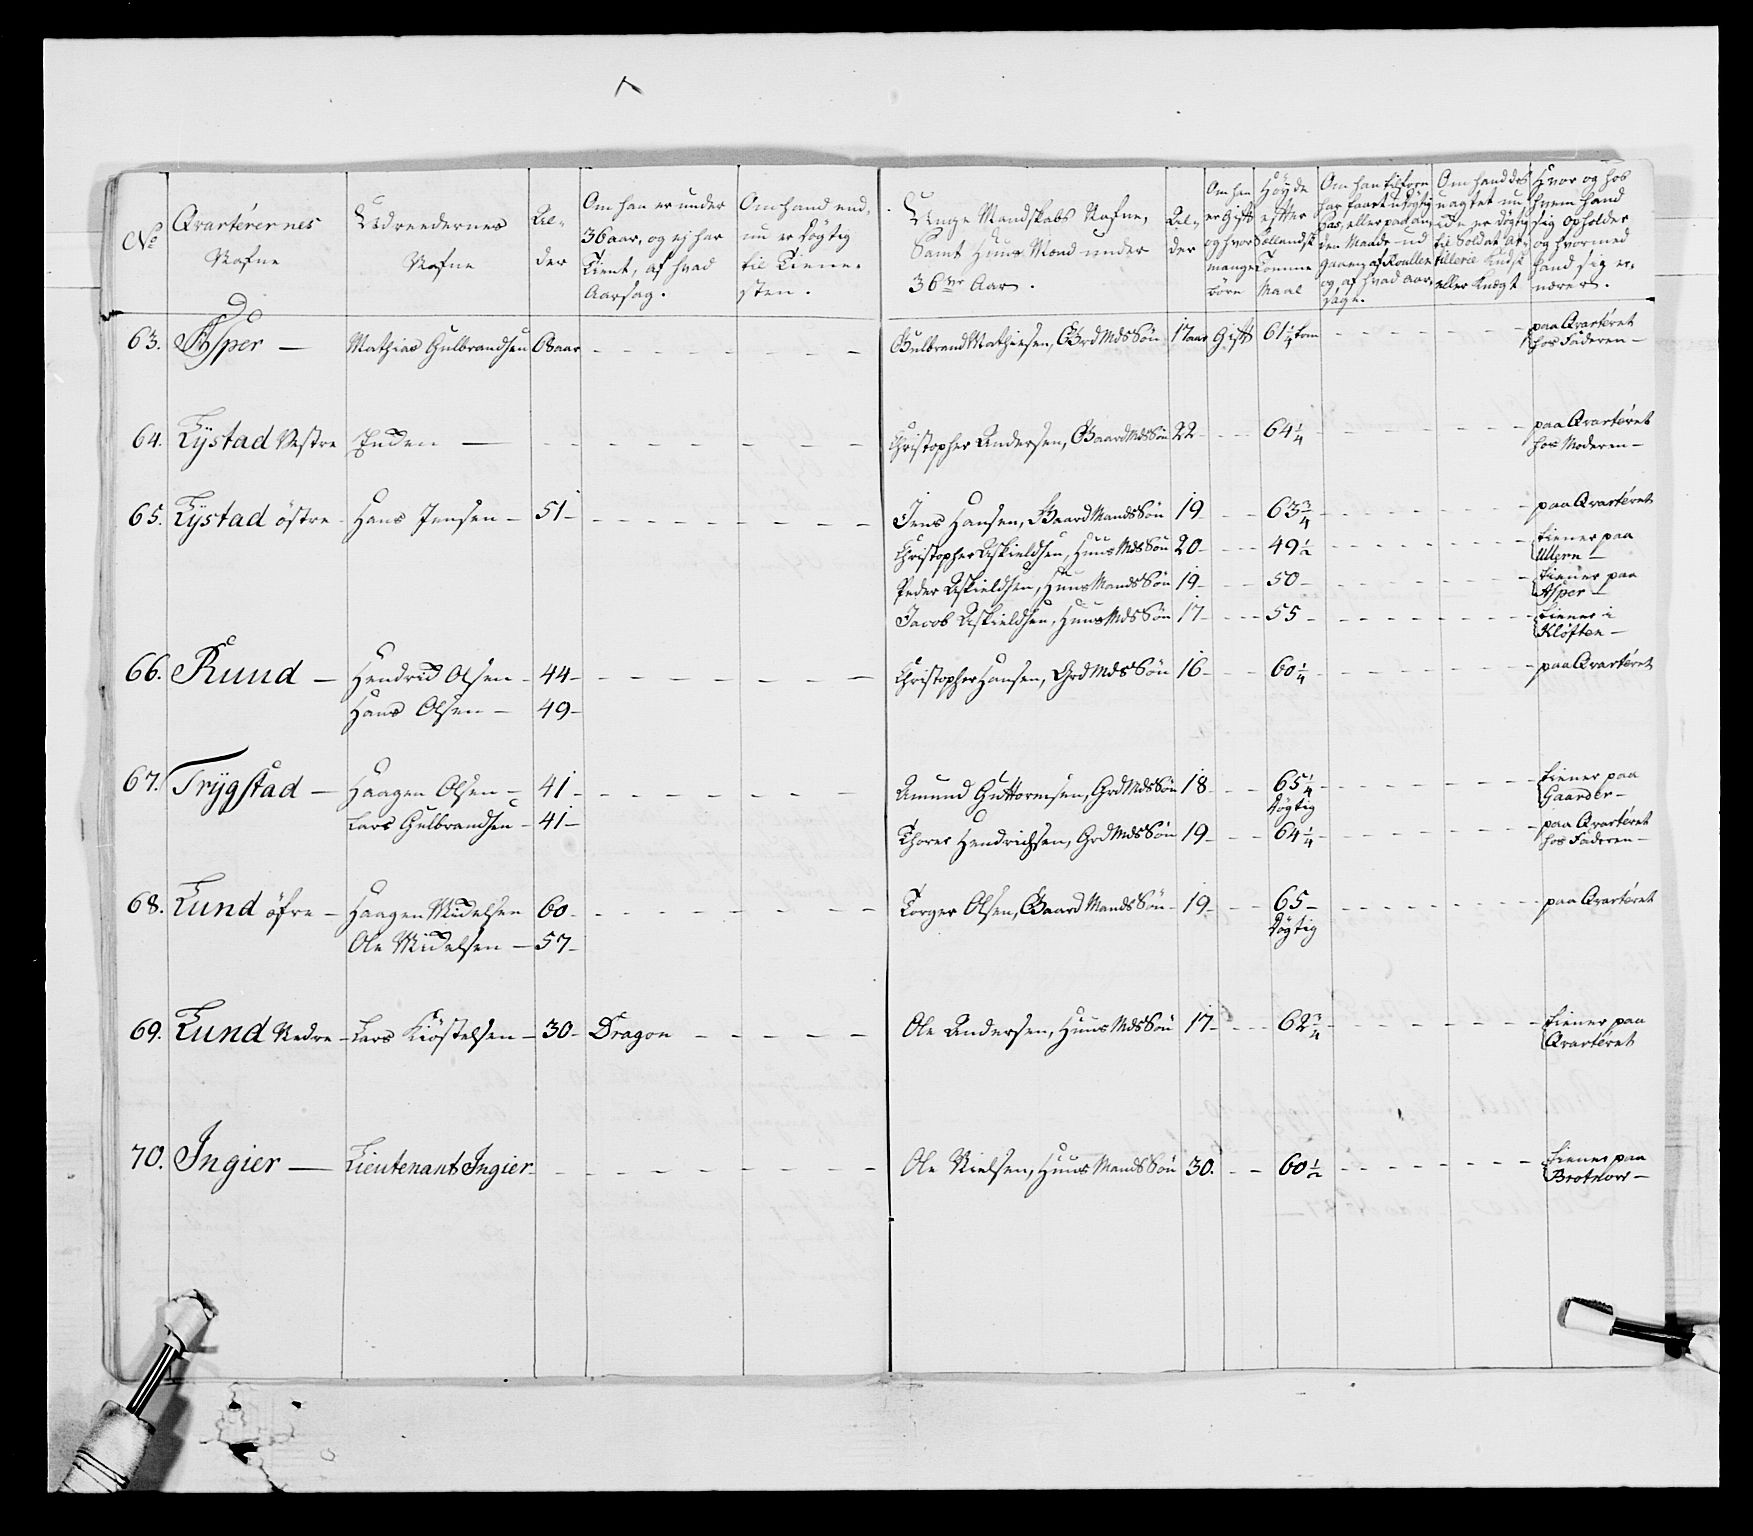 No
Qvarterernes
Nafne
Udreedernes
Nafne
Al-
der
Om han er under
36 aar, og ej har
Tient, af hvad
Aarsag.
Om hand end,
nu er døgtig
til Tiene,
sten.
Unge Mandskabs Nafne,
Samt Huus Mænd under
36 ve Aar.
Al-
der
Om han
er Gift
og hvor
mange
børn
Høyde
efter
Sællandsk
Tomme
Maal
Om han tilforn
har faaet udygtig
Pas, eller paa an-
den Maade ud
gaaen af Roullen
og af hvad aar,
sag.
Om hand des
uagtet nu
ude er døgtig
til Soldat Ar-
tillerie Kudsk
eller Knægt
Hvor og hos
hvem hand
sig opholder
og hvormed
hand sig er-
nærer.
63. Asper — Mathias Gulbrandsen 68 aar - - - Gulbrand Mathiesen, Grd Mds Søn 17 aar Gift 61 1/4 tom - - - paa Qvarteret
hos Faderen —
64. Lÿstad Vestre Enken — - - - Christopher Andersen, Gaard Mds Søn 22 - - 64 1/4 - - - paa Qvarteret
hos Moderen —
65. Lÿstad östre - Hans Jensen - 51 - - - Jens Hansen, Gaard Mands Søn 19 - - 63 3/4 - - - paa Qvarteret
Christopher Askieldsen, Huus Mds Søn 20 - - 49 1/2 - - - tiener paa
Ullern —
Peder Askieldsen, Huus Mands Søn 19 - - 50 - - - tiener paa
Asper —
Jacob Askieldsen, Huus Mds Søn 17 - - 55 - - - tiener i
Kløften —
66. Ruud — Hendrich Olsen - 44 - - - Christopher Hansen, Grd Mds Søn 16 - - 60 1/4 - - - paa Qvarteret
Hans Olsen — 49 -
67. Trÿgstad — Haagen Olsen - 41 - - - Amund Guttormsen, Grd Mds Søn 18 - - 65 1/4 - - - tiener paa
døgtig Gaarder —
Lars Gulbrandsen - 41 - Thorer Hendrichsen, Grd Mds Søn 19 - - 64 1/4 - - - paa Qvarteret
hos Faderen —
68. Lund öfre - Haagen Michelsen 60 - - - Torger Olsen, Gaard Mands Søn - 19 - - 65 - - - - paa Qvarteret
døgtig
Ole Michelsen — 57 -
69. Lund Nedre - Lars Kiöstelsen - 30 - Dragon - - - Ole Andersen, Huus Mds Søn 17 - - 62 3/4 - - - tiener paa
Qvarteret
70. Ingier — Lieutenant Ingier - - - Ole Nielsen, Huus Mands Søn 30. - - 60 1/2 - - - tiener paa
Brotnou —